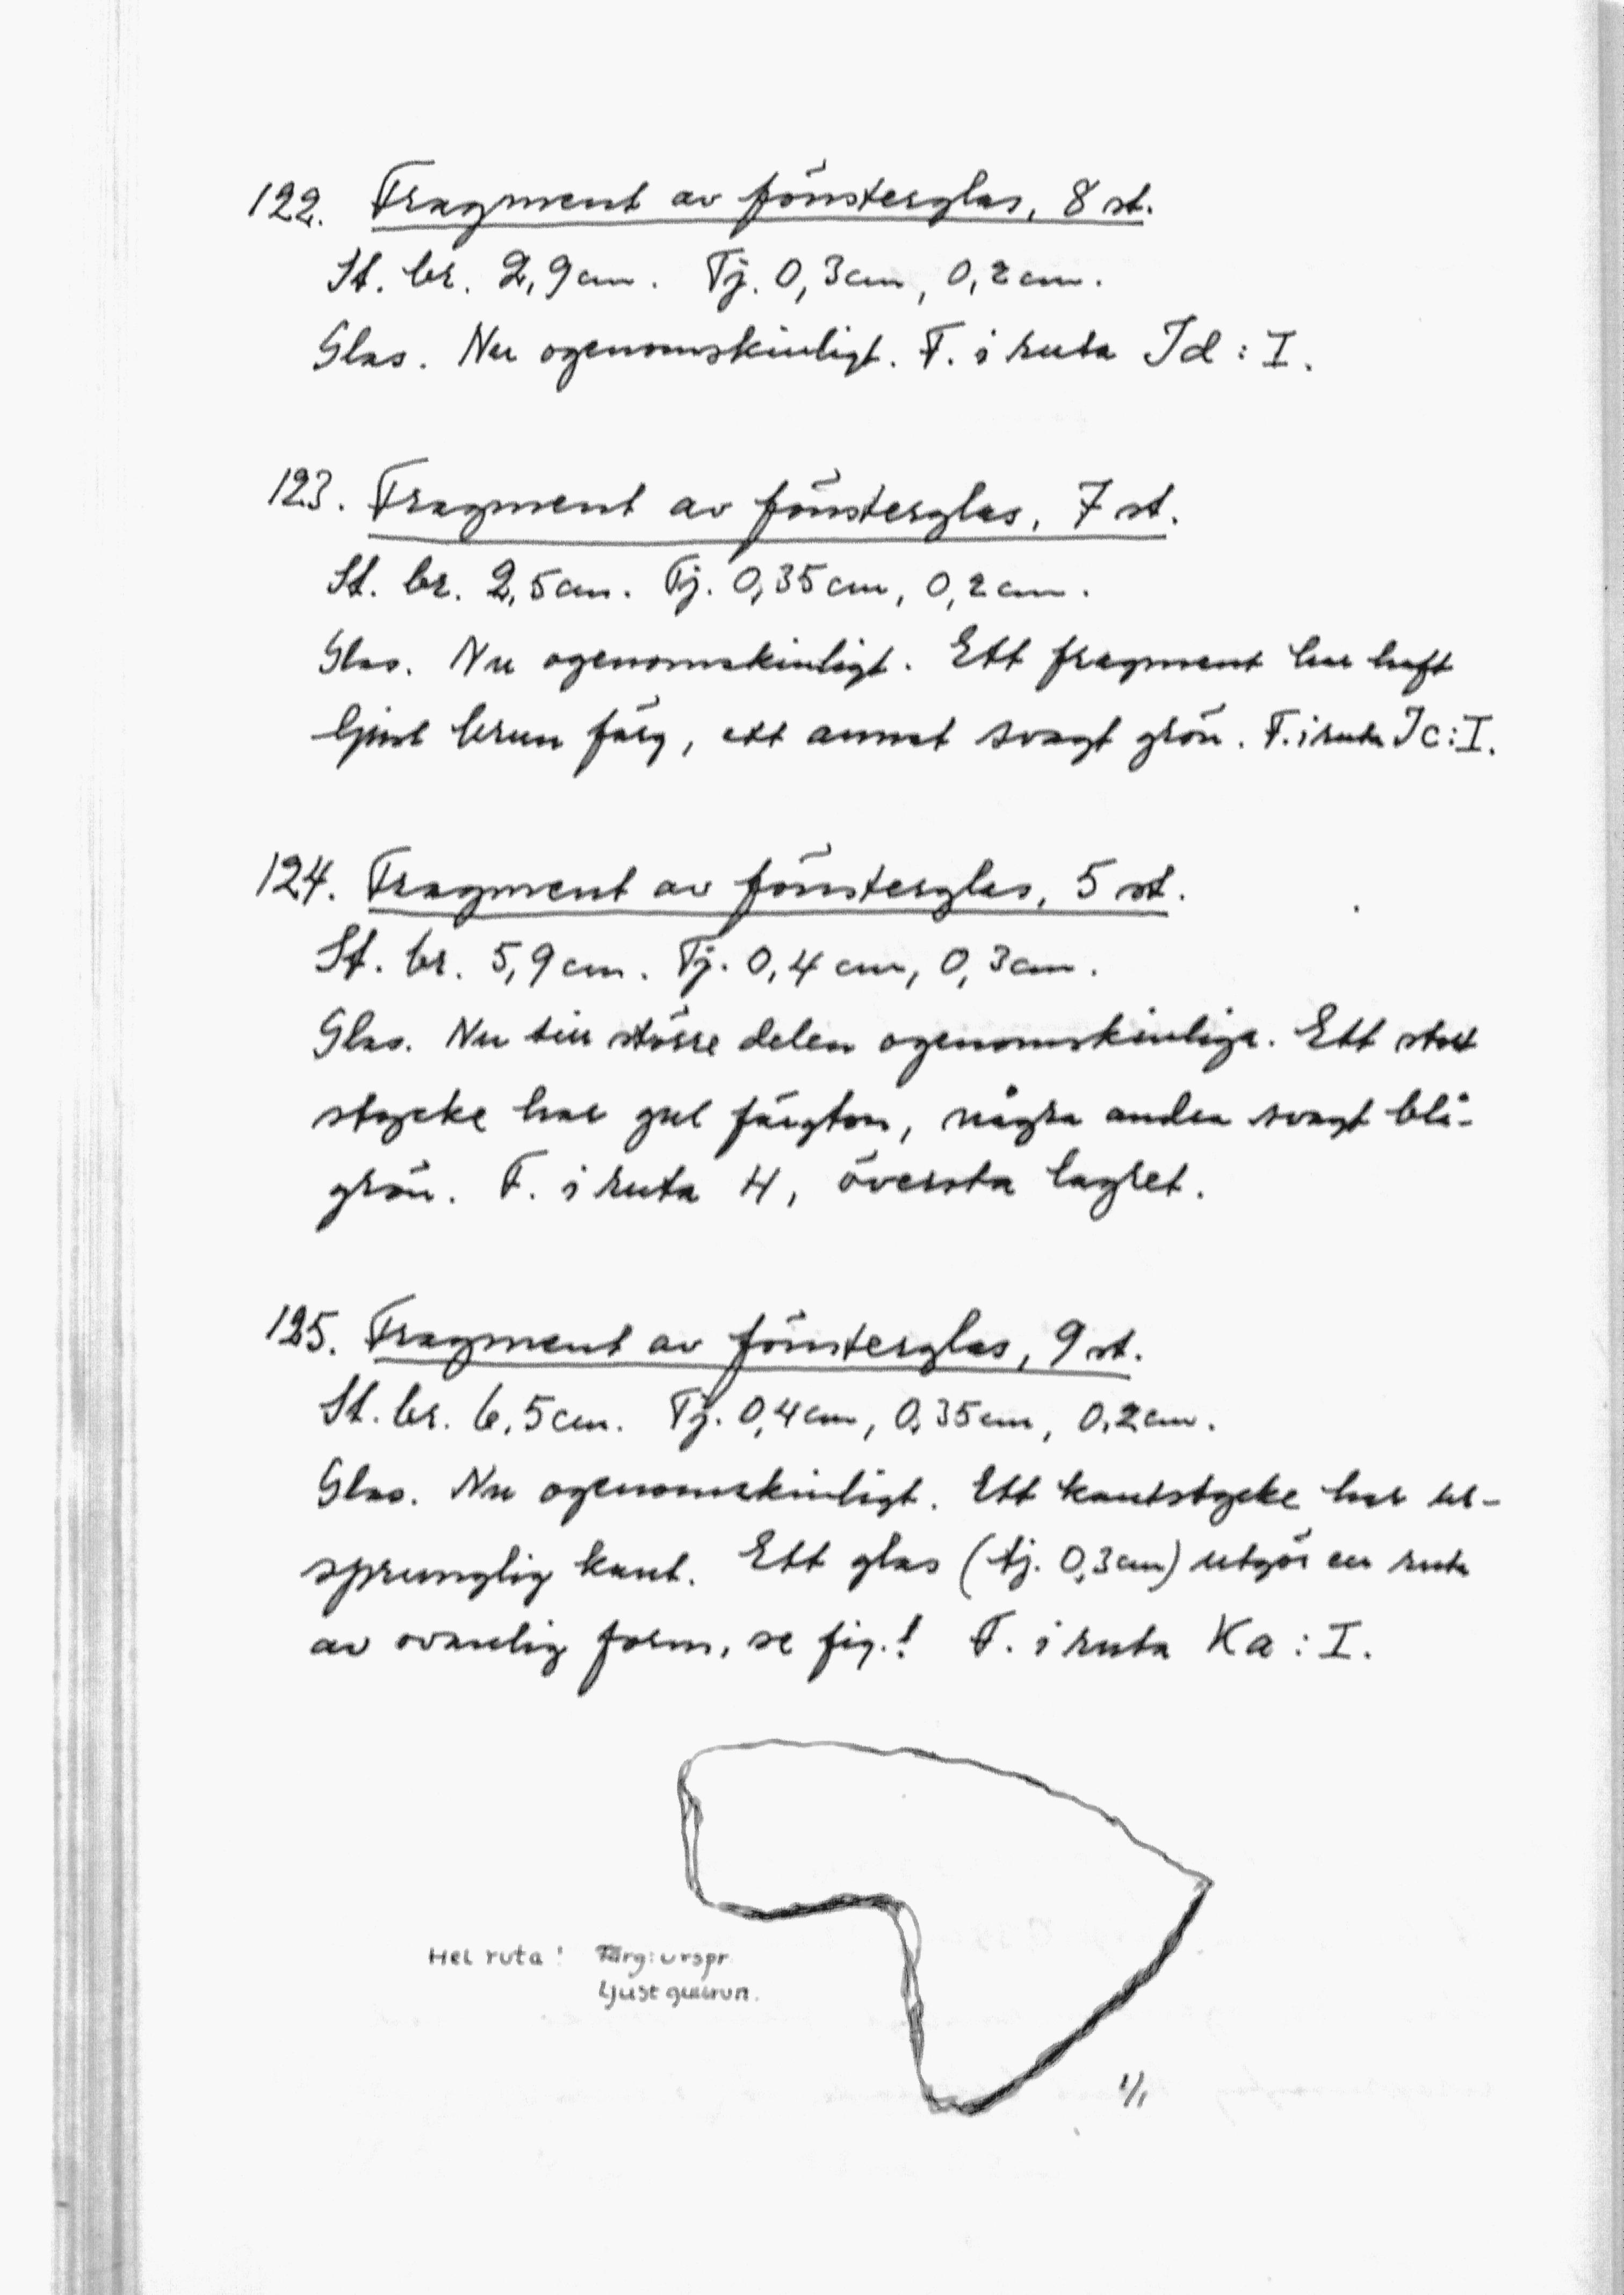 122. Fragment av fönsterglas, 8 st.
St. br. 2,9 cm. Tj. 0,3 cm, 0,2 cm.
Glas. Nu ogenomskinligt. F. i ruta Id : I.
123. Fragment av fönsterglas, 7 st.
St. br. 2,5 cm. Tj. 0,35 cm, 0,2 cm.
Glas. Nu ogenomskinligt. Ett fragment har haft
ljust brun färg, ett annat svagt grön. F. i ruta Ic : I.
124. Fragment av fönsterglas, 5 st.
St. br. 5,9 cm. Tj. 0,4 cm, 0,3 cm.
Glas. Nu till större delen ogenomskinliga. Ett stort
stycke har gul färgton, några andra svagt blå-
grön. F. i ruta 4, översta lagret.
125. Fragment av fönsterglas, 9 st.
St. br. 6,5 cm. Tj. 0,4 cm, 0,35 cm, 0,2 cm.
Glas. Nu ogenomskinligt. Ett kantstycke har ur-
sprunglig kant. Ett glas (tj. 0,3 cm) utgör en ruta
av ovanlig form, se fig.! F. i ruta Ka : I.
Hel ruta! Färg: urspr.
ljust gulbrun.
1/1